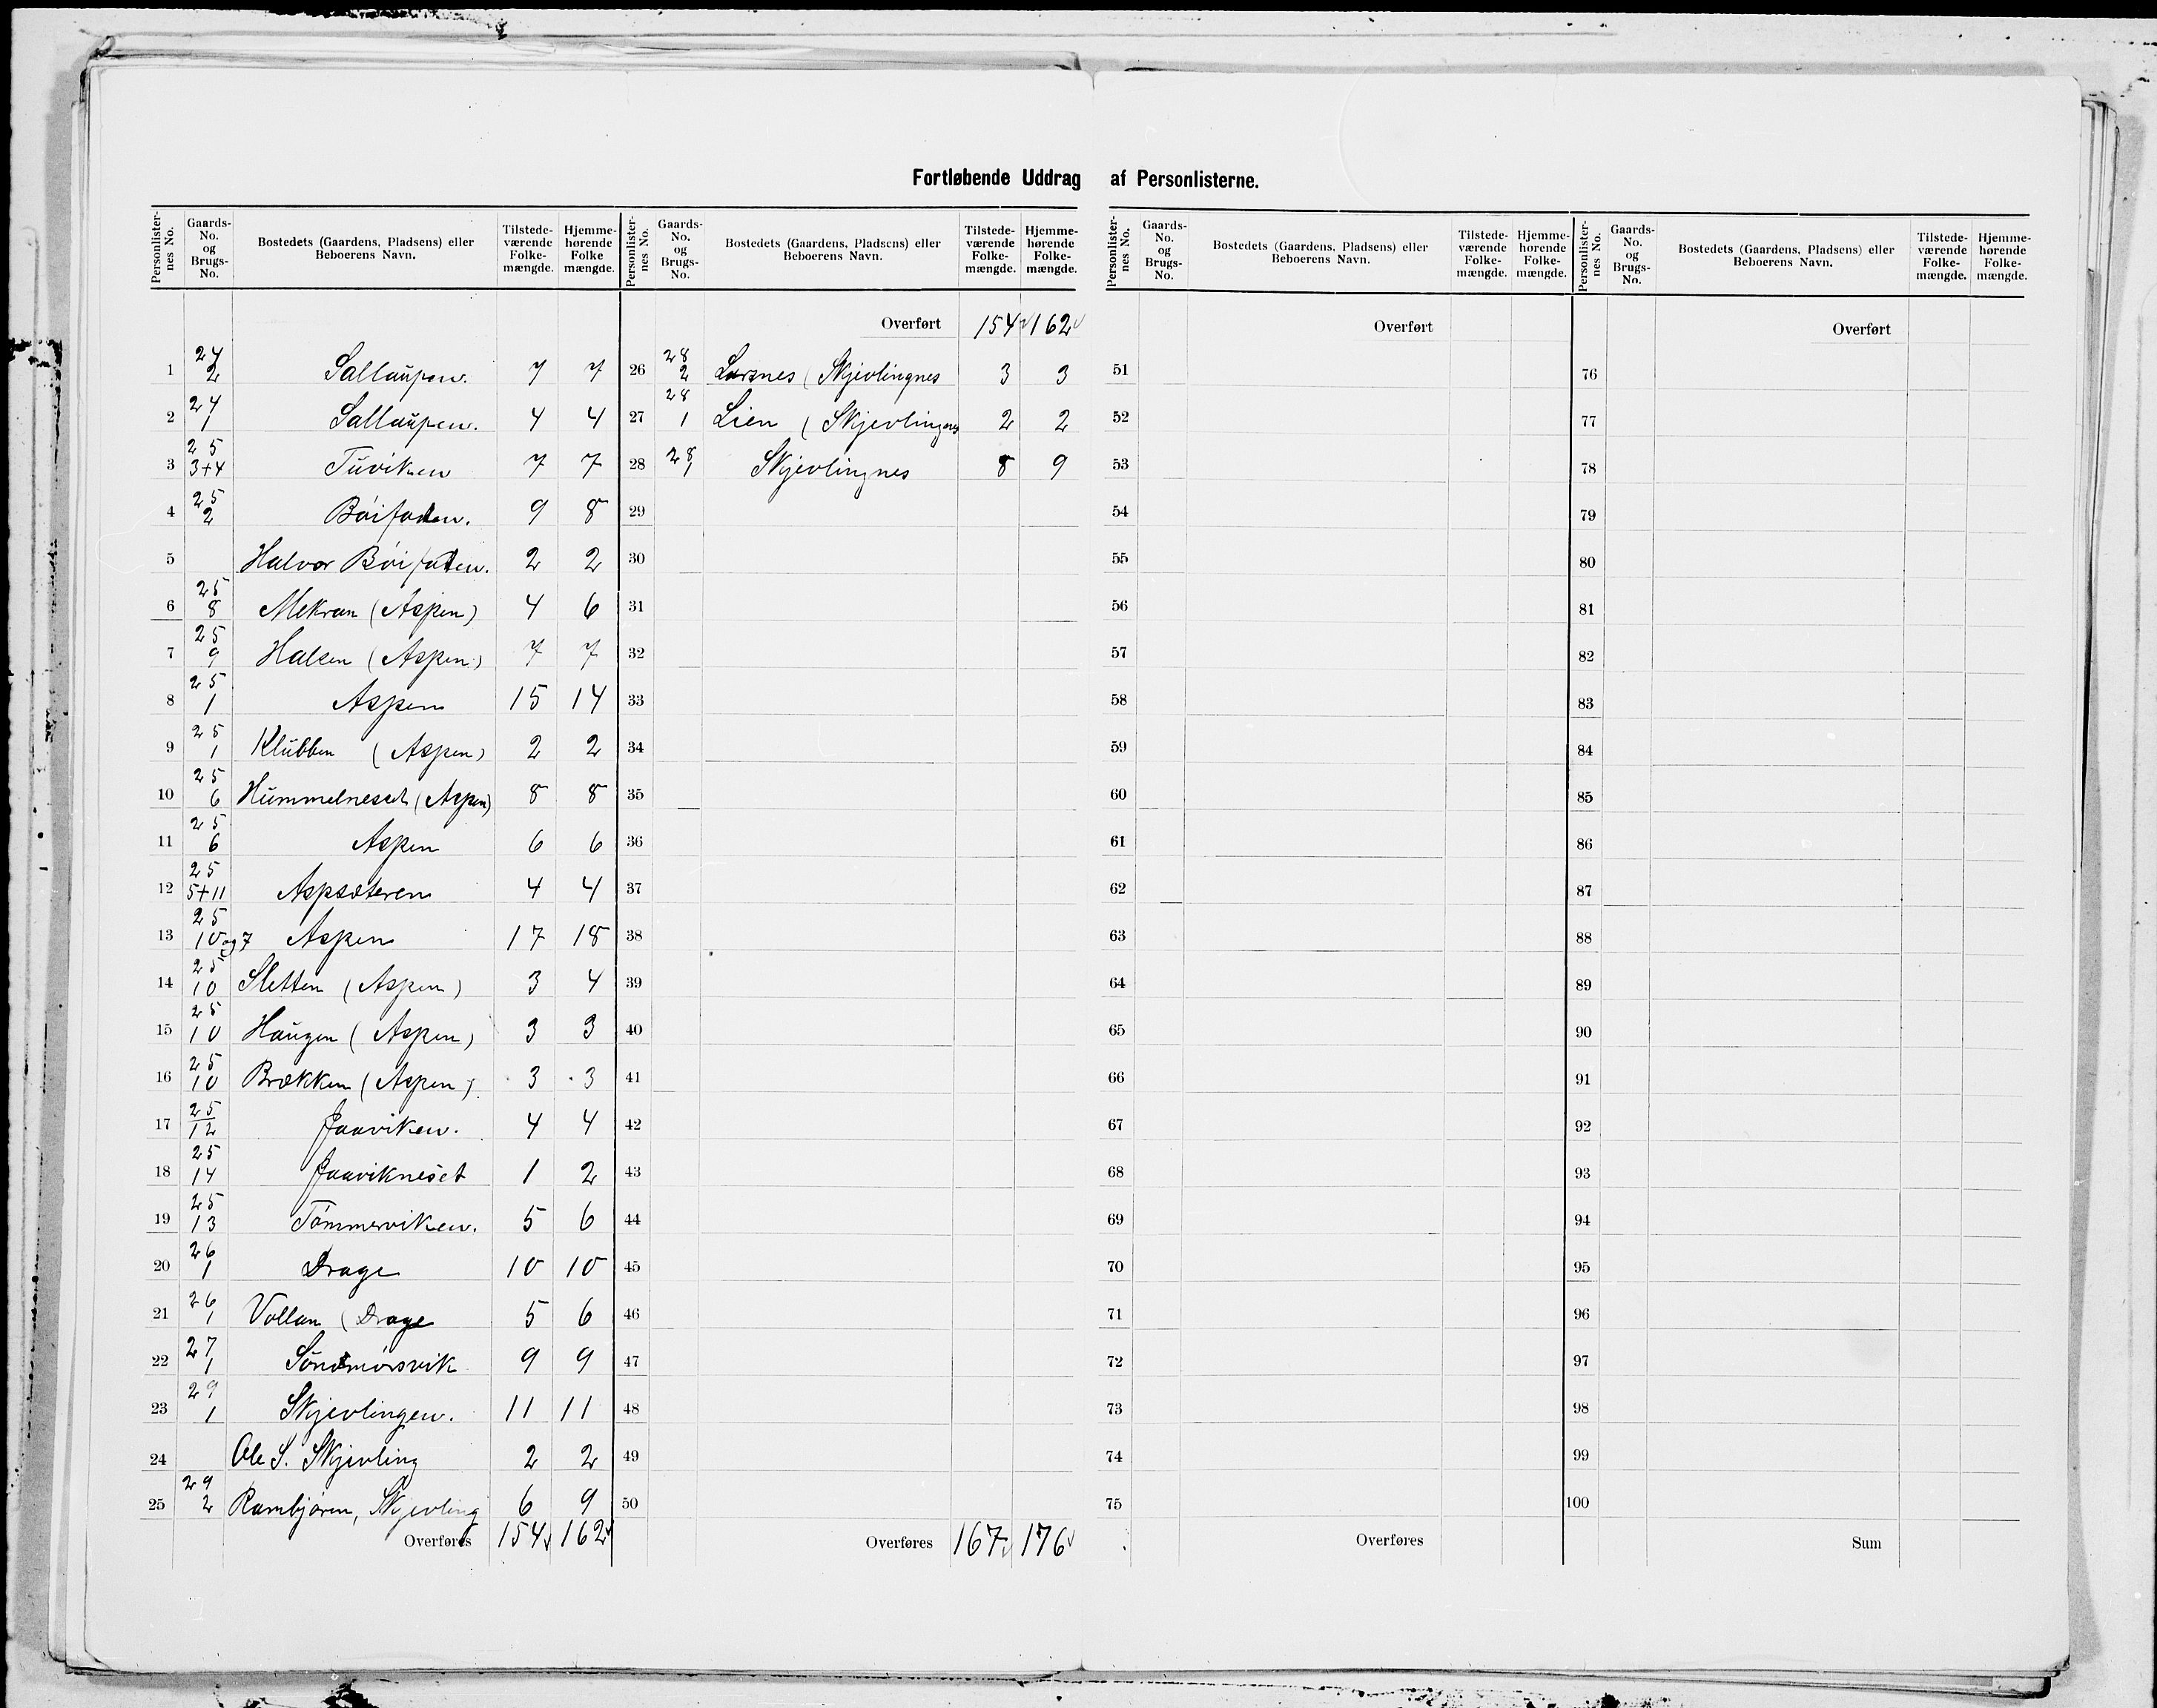 Fortløbende Uddrag af Personlisterne.
Personlister-nes No. Gaards-No. og Brugs-No. Bostedets (Gaardens, Pladsens) eller Beboerens Navn. Tilstede-værende Folke-mængde. Hjemme-hørende Folke mængde.
Personlister-nes No. Gaards-No. og Brugs-No. Bostedets (Gaardens, Pladsens) eller Beboerens Navn. Tilstede-værende Folke-mængde. Hjemme-hørende Folke-mængde.
Personlister-nes No. Gaards-No. og Brugs-No. Bostedets (Gaardens, Pladsens) eller Beboerens Navn. Tilstede-værende Folke-mængde. Hjemme-hørende Folke-mængde.
Personlister-nes No. Gaards-No. og Brugs-No. Bostedets (Gaardens, Pladsens) eller Beboerens Navn. Tilstede-værende Folke-mængde. Hjemme-hørende Folke-mængde.
1 24 2 Sallaupen. 7 7
2 24 1 Sallaupen. 4 4
3 25 3+4 Tuviken 7 7
4 25 2 Böifoden. 9 8
5 Halvor Böifoten. 2 2
6 25 8 Mekran (Aspen) 4 6
7 25 9 Halsen (Aspen) 7 7
8 25 1 Aspen 15 14
9 25 1 Klubben (Aspen) 2 2
10 25 6 Hummelnesset (Aspen) 8 8
11 25 6 Aspen 6 6
12 25 5+11 Aspsæteren 4 4
13 25 10 og 7 Aspen 17 18
14 25 10 Sletten (Aspen) 3 4
15 25 10 Haugen (Aspen) 3 3
16 25 10 Brækken (Aspen) 3 3
17 25 12 Jaaviken. 4 4
18 25 14 Jaavikneset 1 2
19 25 13 Tömmerviken. 5 6
20 26 1 Drage 10 10
21 26 1 Vollan (Drage 5 6
22 27 1 Söndmörsvik 9 9
23 29 1 Skjevlingen. 11 11
24 Ole S. Skjevling 2 2
25 29 2 Rambjören, Skjevling 6 9
Overføres 154 162
Overført 154 162
26 28 2 Larsnes (Skjevlingnes 3 3
27 28 1 Lien (Skjevlingnes 2 2
28 28 1 Skjevlingnes 8 9
29
30
31
32
33
34
35
36
37
38
39
40
41
42
43
44
45
46
47
48
49
50
Overføres 167 176
Overført
51
52
53
54
55
56
57
58
59
60
61
62
63
64
65
66
67
68
69
70
71
72
73
74
75
Overføres
Overført
76
77
78
79
80
81
82
83
84
85
86
87
88
89
90
91
92
93
94
95
96
97
98
99
100
Sum